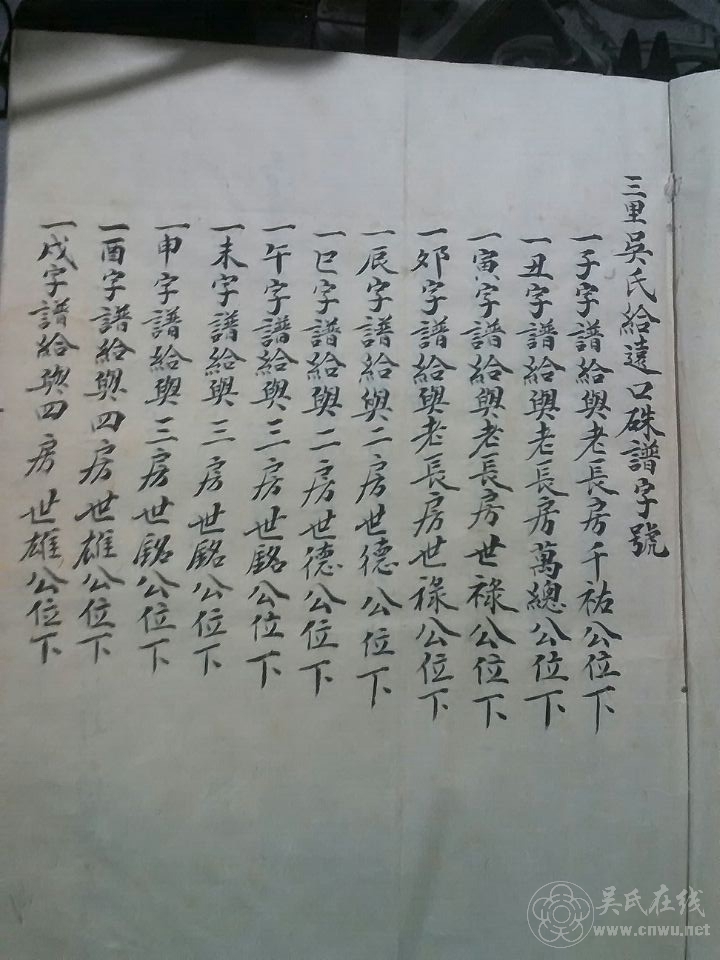 三里吳氏給遠口硃譜字號
一子字譜給與老長房千祐公位下
一丑字譜給與老長房萬總公位下
一寅字譜給與老長房世祿公位下
一夘字譜給與老長房世祿公位下
一辰字譜給與二房世德公位下
一巳字譜給與二房世德公位下
一午字譜給與三房世銘公位下
一未字譜給與三房世銘公位下
一申字譜給與三房世銘公位下
一酉字譜給與四房世雄公位下
一戌字譜給與四房世雄公位下
吴氏在线
www.cnwu.net